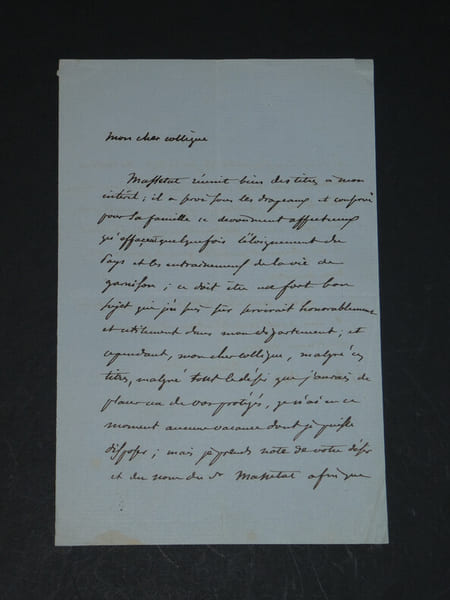 mon cher collègue
Massetat réunit bien des titres à mon
intérêt; il a servi sous les drapeaux et conservé
pour sa famille ce dévoûment affectueux
qu'effacent quelquefois l'éloignement du
Pays et les entrainemens de la vie de
garnison; ce doit être un fort bon
sujet qui j'en suis sûr servirait honorablement
et utilement dans mon département; et
cependant, mon cher collègue, malgré ces
titres, malgré tout le désir que j'aurais de
placer un de vos protégés, je n'ai en ce
moment aucune vacance dont je puisse
disposer; mais je prends note de votre désir
et du nom du Sr Massetat afin que